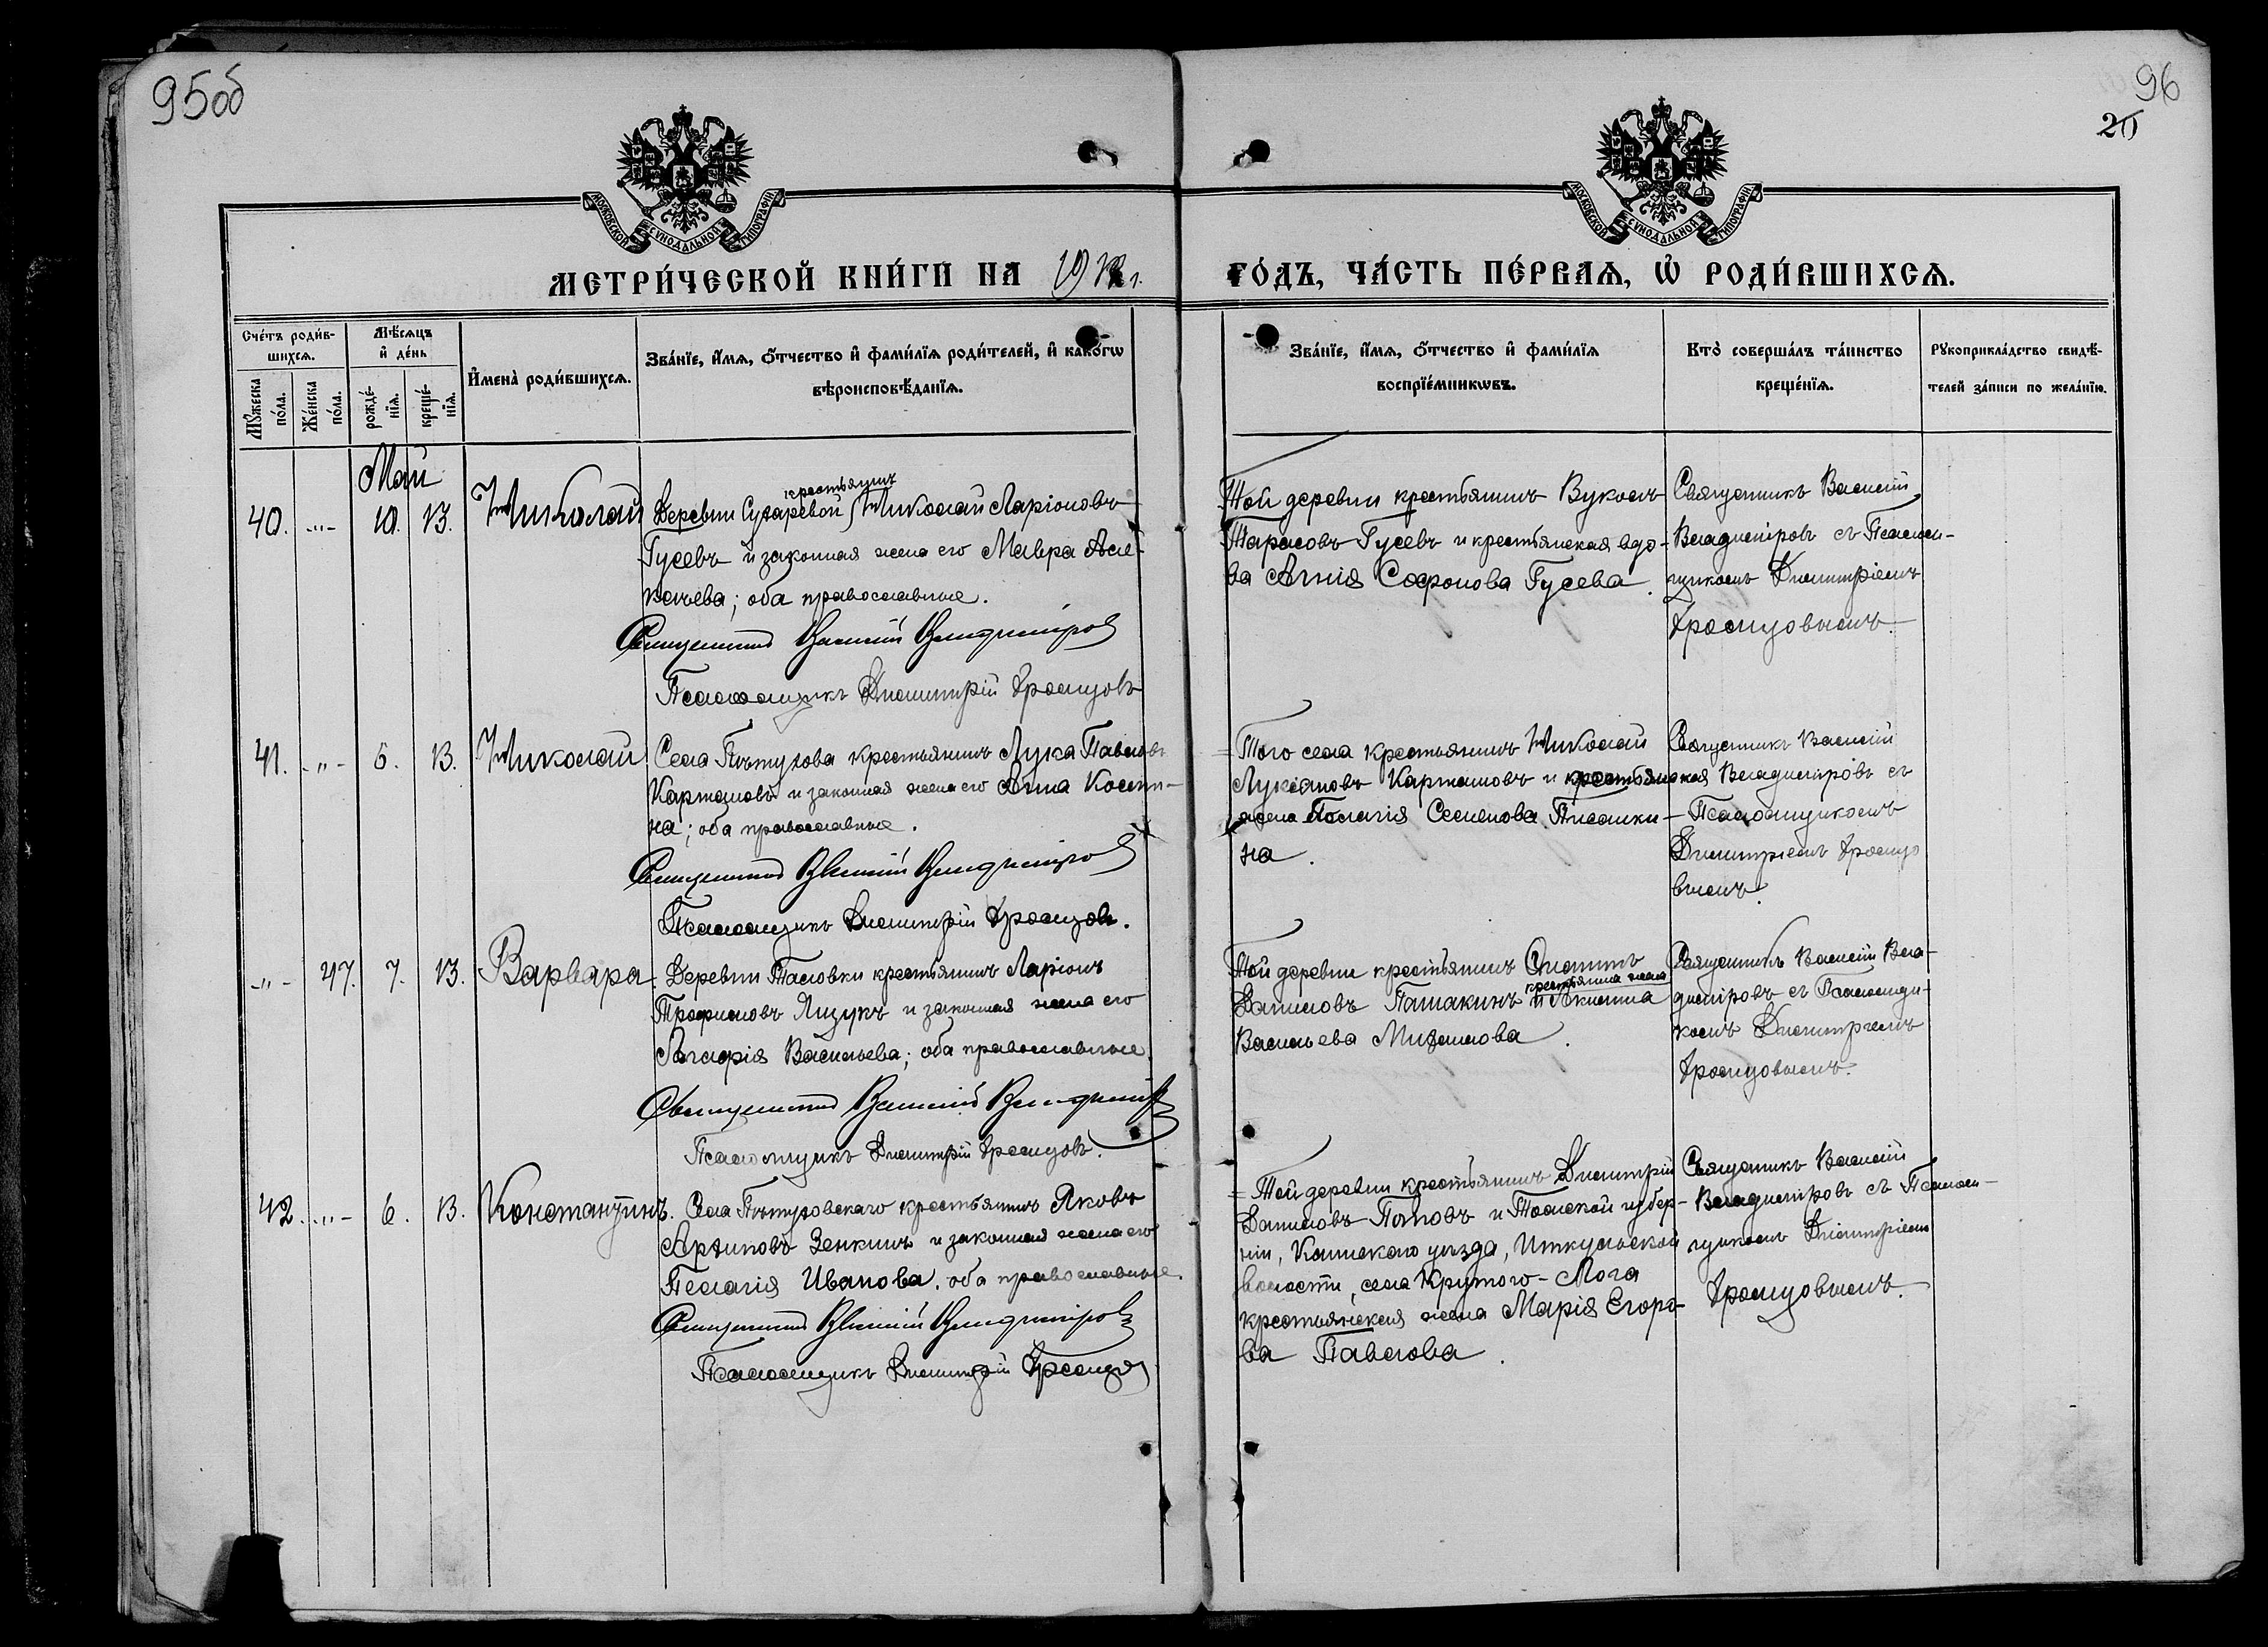 95об
96
20
МОСКОВСКОЙ СѴНОДАЛЬНОЙ ТИПОГРАФІИ
МОСКОВСКОЙ СѴНОДАЛЬНОЙ ТИПОГРАФІИ
МЕТРИ́ЧЕСКОЙ КНИ́ГИ НА 191 г.
ГО́ДЪ, ЧА́СТЬ ПЕ́РВАѦ, Ѡ҆ РОДИ́ВШИХСѦ.
Сче́тъ роди́в-
шихсѧ.
Мꙋ́жеска по́ла.
Же́нска по́ла.
Мѣ́сѧцъ
и҆ де́нь
рожде́-
нїѧ.
креще́-
нїѧ.
И҆мена̀ роди́вшихсѧ.
Зва́нїе, и҆́мѧ, ѻ҆́тчество и҆ фами́лїѧ роди́телей, и҆ како́гѡ
вѣроисповѣ́данїѧ.
Зва́нїе, и҆́мѧ, ѻ҆́тчество и҆ фами́лїѧ
воспрїе́мникѡвъ.
Кто̀ соверша́лъ та́инство
креще́нїѧ.
Рꙋкоприкла́дство свидѣ́-
телей за́писи по жела́нїю.
Май
40. -"- 10. 13. Николай
крестьянинъ
Деревни Сухаревой Николай Ларіоновъ
Гусевъ и законная жена его Мавра Але-
ксѣева; оба православные.
Священникъ Василій Владиміровъ
Псаломщикъ Димитрій
Той деревни крестьянинъ Вуколъ
Тарасовъ Гусевъ и крестьянская вдо-
ва Агнія Софонова Гусева.
Священникъ Василій
Владиміровъ съ Псалом-
щикомъ Димитріемъ
41. -"- 5. 13. Николай
Села Пѣтухова крестьянинъ Лука Павловъ
и законная жена его Анна Кости-
на; оба православные.
Священникъ Василій Владиміровъ
Псаломщикъ Димитрій
Того села крестьянинъ Николай
Лукіановъ и крестьянская
жена Пелагія Семенова
на.
Священникъ Василій
Владиміровъ съ
Псаломщикомъ
Димитріемъ
вымъ.
-"- 47. 7. 13. Варвара.
Деревни Тасовки крестьянинъ Ларіонъ
Трофимовъ и законная жена его
Агафія Васильева; оба православные.
Священникъ Василій Владиміровъ
Псаломщикъ Димитрій
Той деревни крестьянинъ
крестьянина жена
Даниловъ Пашакинъ и Акилина
Васильева
Священникъ Василій Вла-
диміровъ съ Псаломщи-
комъ Димитріемъ
42. -"- 6. 13. Константинъ.
Села Пѣтуховскаго крестьянинъ Яковъ
Архиповъ Зенкинъ и законная жена его
Пелагія Иванова. оба православные.
Священникъ Василій Владиміровъ
Псаломщикъ Димитрій
Той деревни крестьянинъ Димитрій
Даниловъ Поповъ и Томской губер-
ніи, Каинскаго уѣзда, Иткульской
волости, села Крутого-Лога
крестьянская жена Марія Егоро-
ва Павлова.
Священникъ Василій
Владиміровъ съ Псалом-
щикомъ Димитріемъ